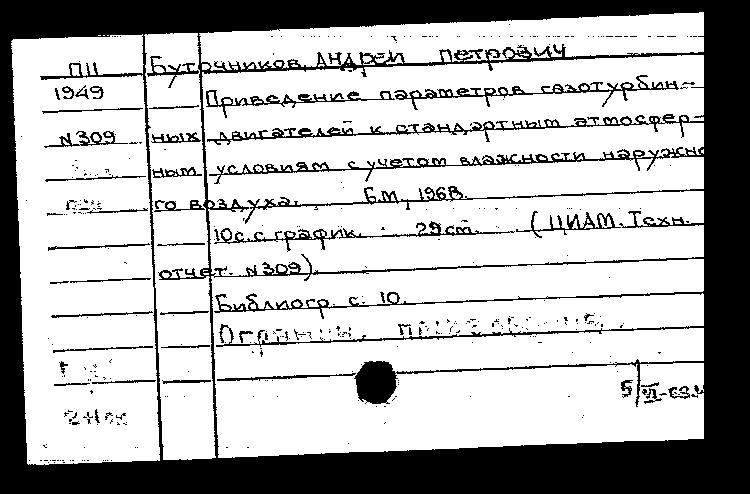 П11 Буточников, Андрей Петрович
1949 Приведение параметров газотурбин-
N309 ных двигателей к стандартным атмосфер-
ным условиям с учетом влажности наружно
го воздуха. Б.М.,
10с. с график. 29см. (ЦИАМ. Техн.
отчет. N309).
Библиогр. с. 10.
Огранич.
5/VI-